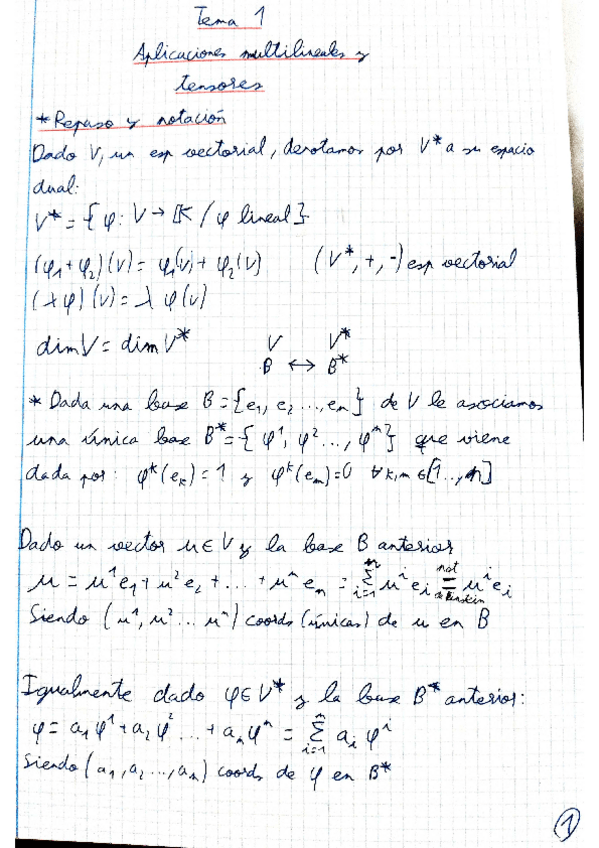 Tema 1
Aplicaciones multilineales y
tensores
* Repaso y notación
Dado V, un esp vectorial, denotamos por V* a su espacio
dual:
V* = { φ: V → K / φ lineal }
(φ₁+φ₂)(v) = φ₁(v) + φ₂(v) (V*, +, ·) esp vectorial
(λφ)(v) = λ φ(v)
dim V = dim V* V V*
B ↔ B*
* Dada una base B = {e₁, e₂ ..., eₙ} de V le asociamos
una única base B* = { φ¹, φ² ..., φⁿ } que viene
dada por: φᵏ(eₖ) = 1 y φᵏ(eₘ) = 0 ∀k,m ∈ [1..,n]
Dado un vector u ∈ V y la base B anterior
u = u¹e₁ + u²e₂ + ... + uⁿeₙ = Σⁿᵢ₌₁ uⁱeᵢ =not uⁱeᵢ
Siendo (u¹, u² ... uⁿ) coords (únicas) de u en B
Igualmente dado φ ∈ V* y la base B* anterior:
φ = a₁φ¹ + a₂φ² ... + aₙφⁿ = Σⁿᵢ₌₁ aᵢ φⁱ
Siendo (a₁, a₂ ..., aₙ) coords de φ en B*
1